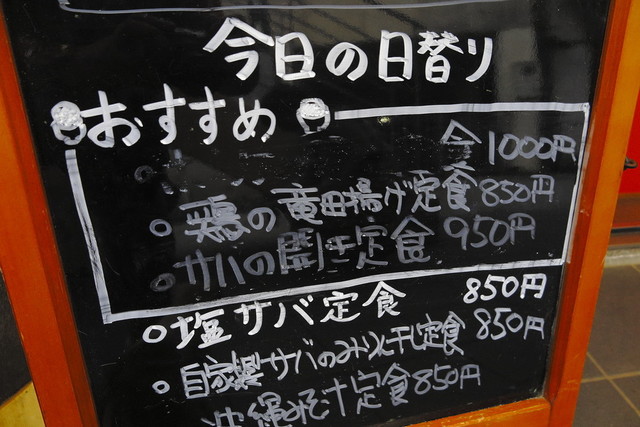 今日の日替り
おすすめ
1000円
鶏の竜田揚げ定食 850円
サバの開き定食 950円
塩サバ定食 850円
自家製サバのみりん干し定食 850円
沖縄そば定食 850円